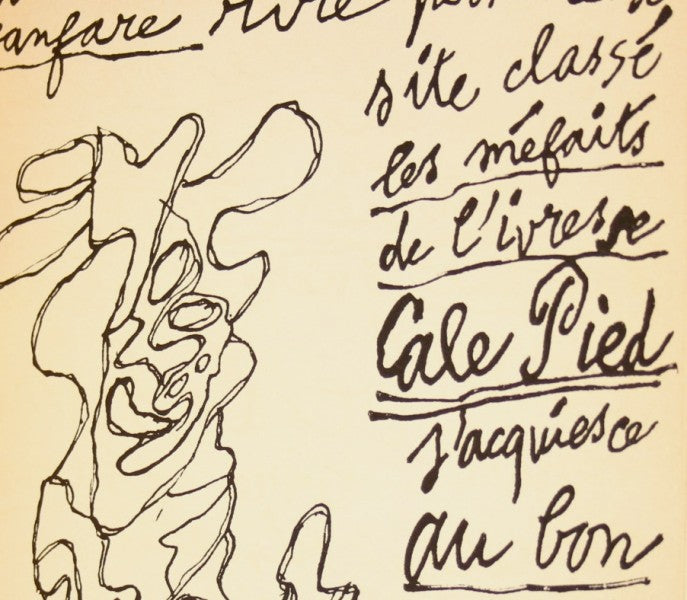 fanfare rire pour
site classé
les méfaits
de l'ivresse
Cale Pied
j'acquiesce
au bon